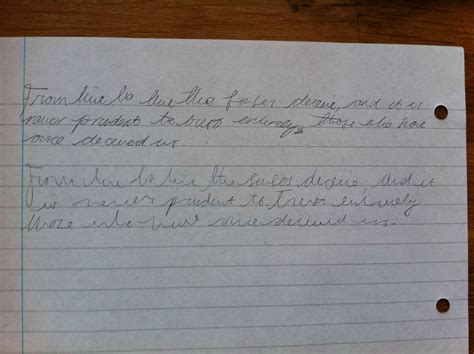 From time to time the senses deceive, and it is
never prudent to trust entirely those who have
once deceived us.
From time to time the senses deceive, and it
is never prudent to trust entirely
those who have once deceived us.